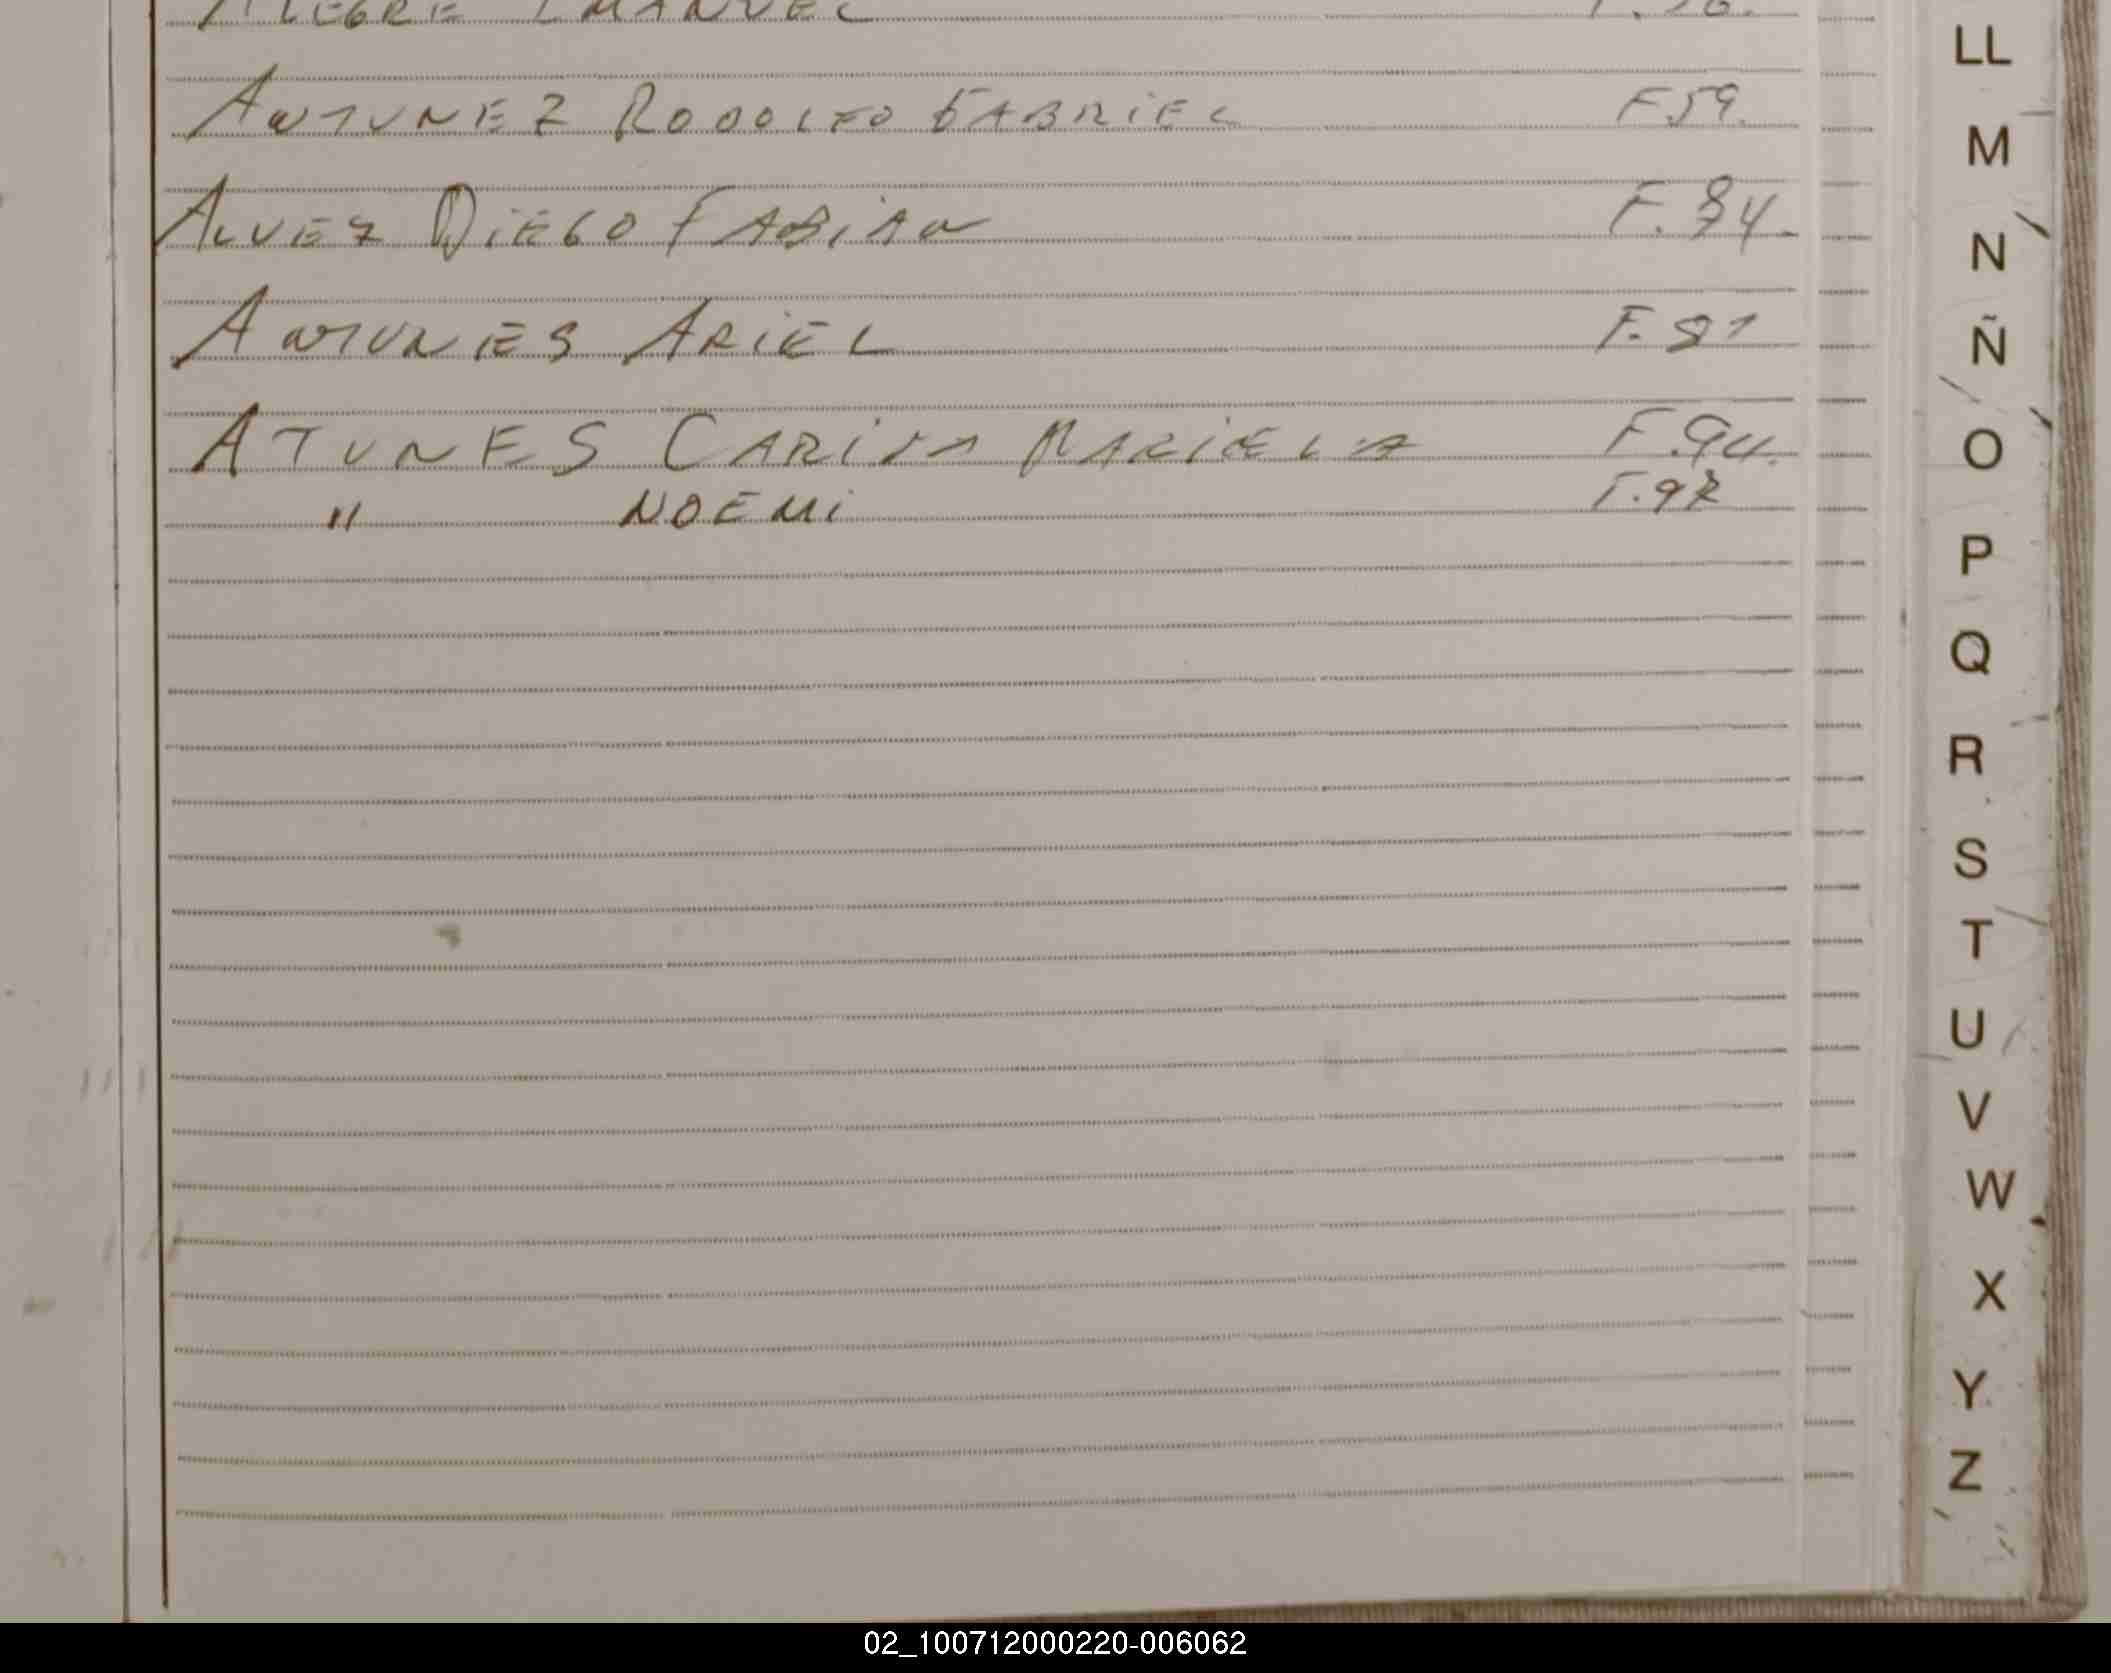 ALEGRE EMANUEL
ANTUNEZ RODOLFO GABRIEL F.59.
ALVEZ DIEGO FABIAN F.84.
ANTUNES ARIEL F.87
ATUNES CARINA MARIELA F.94.
" NOEMI F.97
LL
M
N
Ñ
O
P
Q
R
S
T
U
V
W
X
Y
Z
02_100712000220-006062